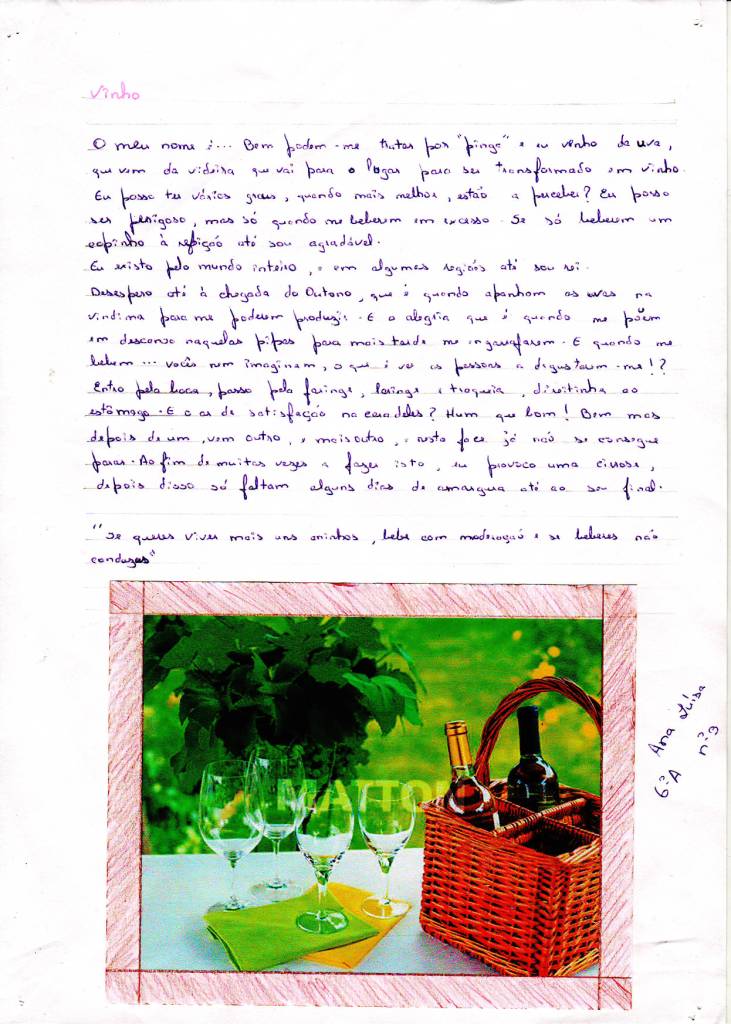 Vinho
O meu nome é... Bem podem-me tratar por "pinga" e eu venho da uva,
que vem da videira que vai para o lagar para ser transformado em vinho.
Eu posso ter vários graus, quando mais melhor, estão a perceber? Eu posso
ser perigoso, mas só quando me beberem em excesso. Se só beberem um
copinho à refeição até sou agradável.
Eu existo pelo mundo inteiro, e em algumas regiões até sou rei.
Desespero até à chegada do Outono, que é quando apanham as uvas na
vindima para me poderem produzir. E a alegria que é quando me põem
em descanso naquelas pipas para mais tarde me engarrafarem. E quando me
bebem... vocês nem imaginam, o que é ver as pessoas a degustarem-me!?
Entro pela boca, passo pela faringe, laringe e traqueia, direitinha ao
estômago. E o ar de satisfação na cara deles? Hum que bom! Bem mas
depois de um, vem outro, e mais outro, e nesta fase já não se consegue
parar. Ao fim de muitas vezes a fazer isto, eu provoco uma cirrose,
depois disso só faltam alguns dias de amargura até ao seu final.
"Se queres viver mais uns aninhos, bebe com moderação e se beberes não
conduzas"
MATTON
Ana Luísa
6ºA nº3